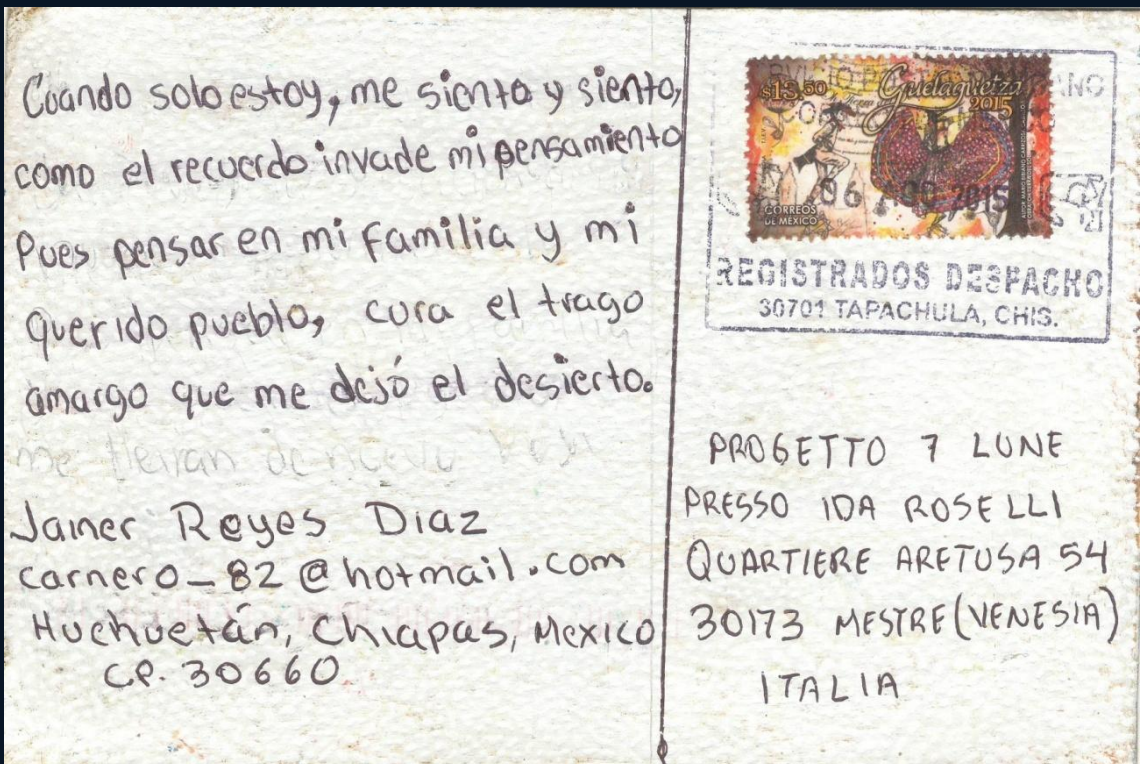 Cuando solo estoy, me siento y siento,
como el recuerdo invade mi pensamiento
Pues pensar en mi familia y mi
querido pueblo, cura el trago
amargo que me dejó el desierto.
Jainer Reyes Diaz
carnero_82@hotmail.com
Huehuetán, Chiapas, Mexico
CP. 30660
$13.50
Guelaguetza
2015
CORREOS
DE MEXICO
06 2015
REGISTRADOS DESPACHO
30701 TAPACHULA, CHIS.
PROGETTO 7 LUNE
PRESSO IDA ROSELLI
QUARTIERE ARETUSA 54
30173 MESTRE (VENESIA)
ITALIA